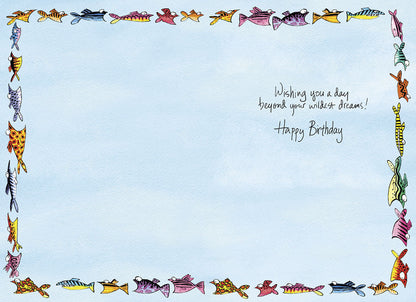 Wishing you a day
beyond your wildest dreams!
Happy Birthday